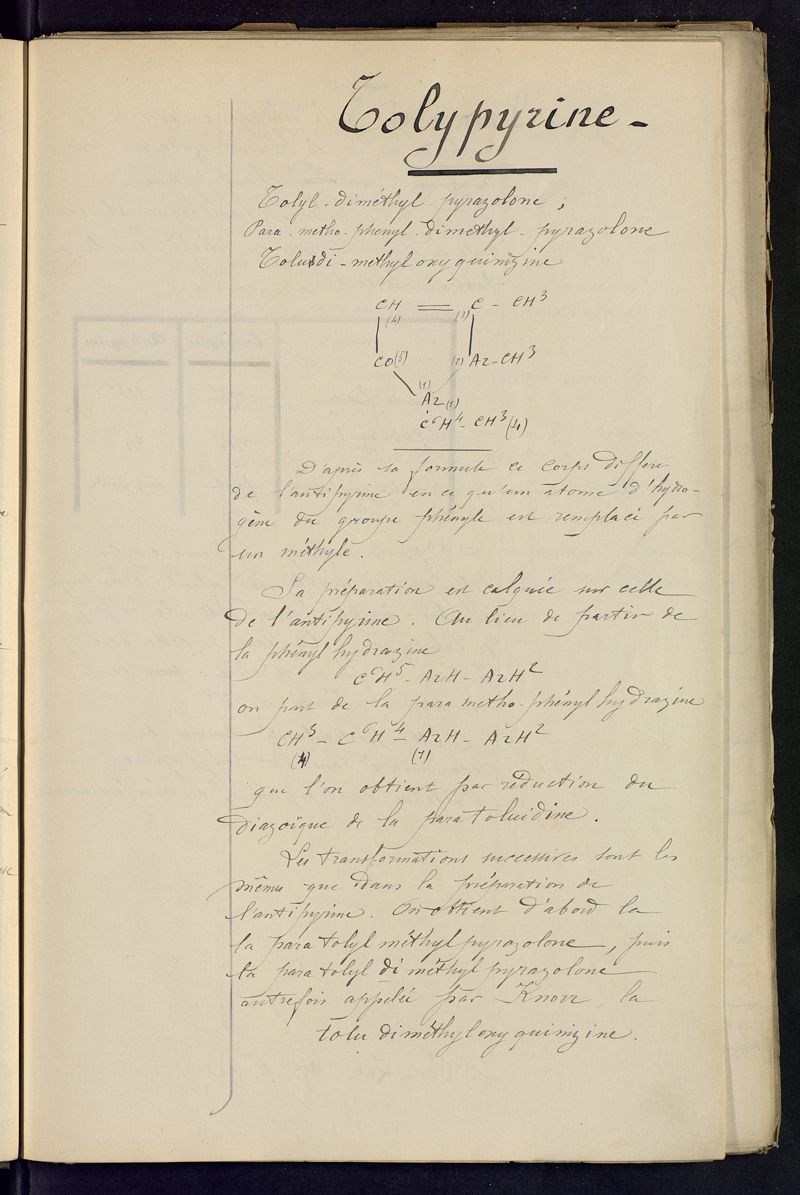 Tolypyrine -
Tolyl-diméthyl-pyrazolone ;
Para-metho-phenyl-dimethyl-pyrazolone
Tolu di-methyloxyquinizine
CH = C - CH3
(4) (3)
CO(5) (2) Az-CH3
(1)
Az(1)
C6H4- CH3(4)
D'après sa formule ce corps differe
de l'antipyrine en ce qu'un atome d'hydro-
gène du groupe phényle est remplacé par
un méthyle.
Sa préparation est calquée sur celle
de l'antipyrine. Au lieu de partir de
la phénylhydrazine
C6H5- AzH- AzH2
on part de la para metho-phénylhydrazine
CH3 - C6H4- AzH- AzH2
(4) (1)
que l'on obtient par réduction du
diazoïque de la para toluidine.
Les transformations successives sont les
mêmes que dans la préparation de
l'antipyrine. On obtient d'abord la
la para tolyl méthylpyrazolone, puis
la para tolyl di méthylpyrazolone
autrefois appelée par Knorr, la
tolu diméthyloxyquinizine.